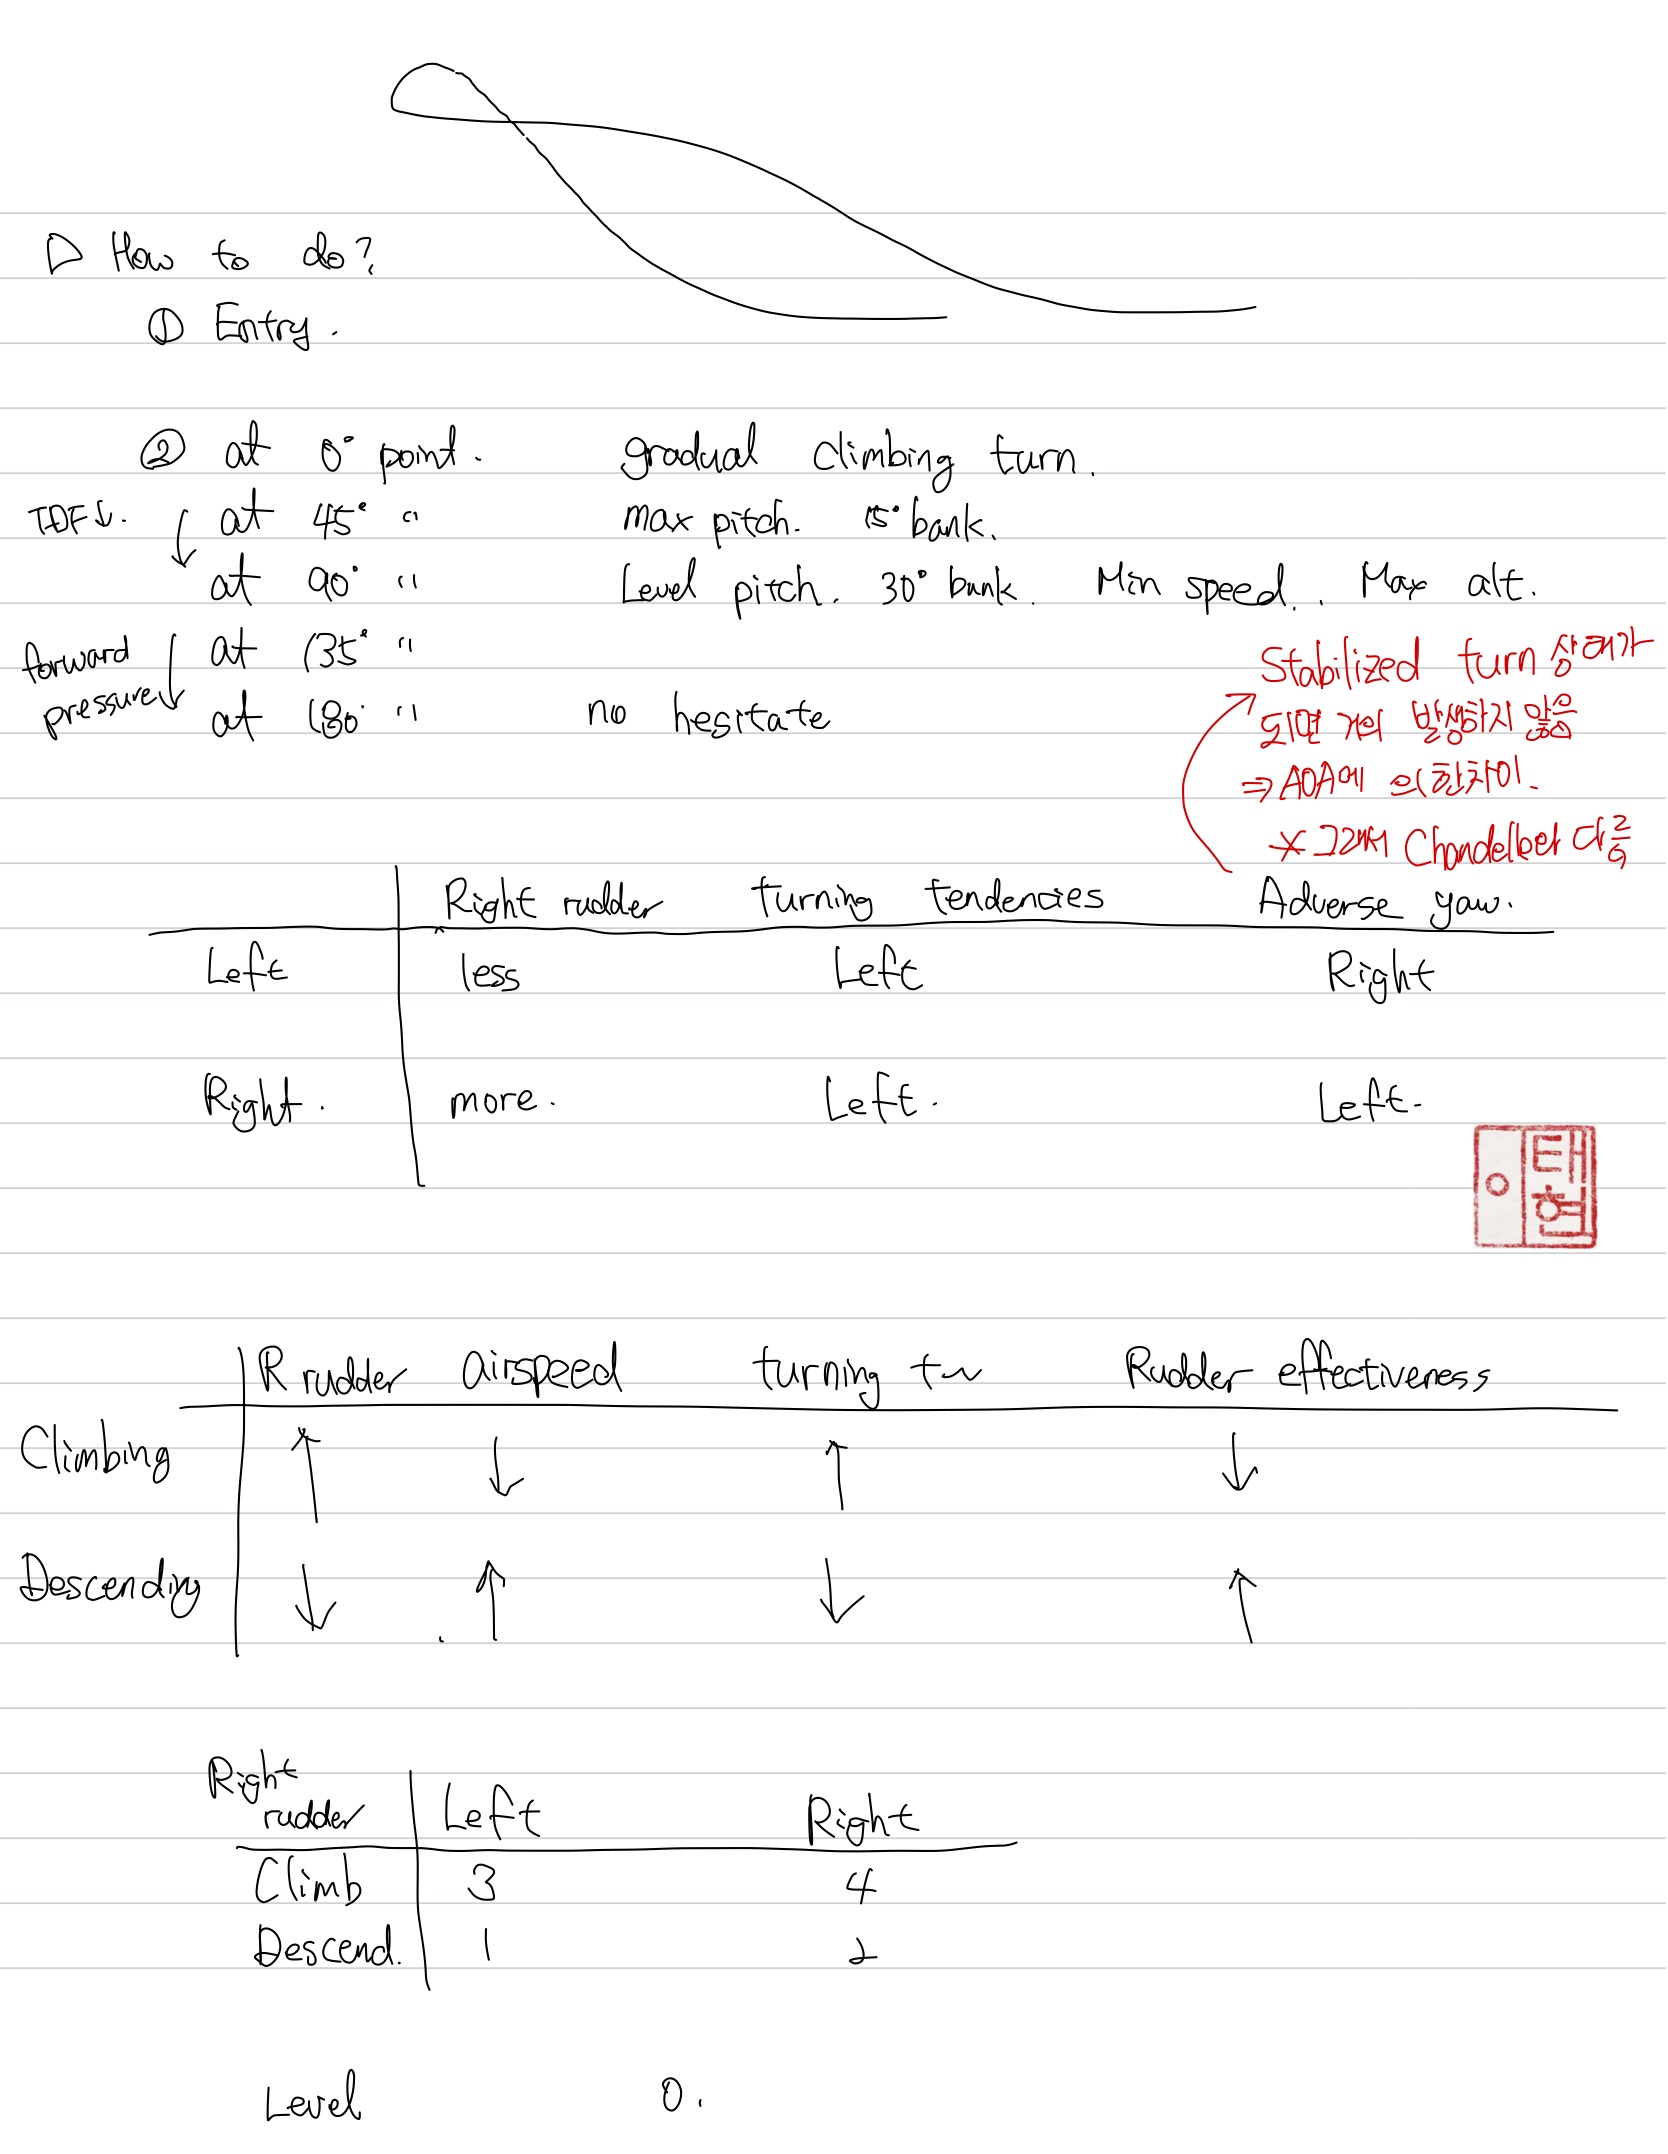 ▷ How to do?
① Entry.
② at 0° point. gradual climbing turn.
TDF↓. at 45° " max pitch. 15° bank.
at 90° " Level pitch. 30° bank. Min speed.. Max alt.
forward pressure at 135° "
at 180° " no hesitate
Stabilized turn 상태가
되면 거의 발생하지 않음
⇒ AOA에 의한차이.
* 그래서 Chandelle랑 다름
Right rudder turning tendencies Adverse yaw.
Left less Left Right
Right. more. Left. Left.
태현
R rudder airspeed turning t~ Rudder effectiveness
Climbing ↑ ↓ ↑ ↓
Descending ↓ ↑ ↓ ↑
Right rudder Left Right
Climb 3 4
Descend. 1 2
Level 0.